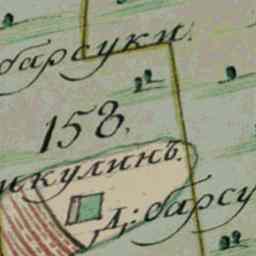 барсуки.
158.
икулинъ.
д: барсу